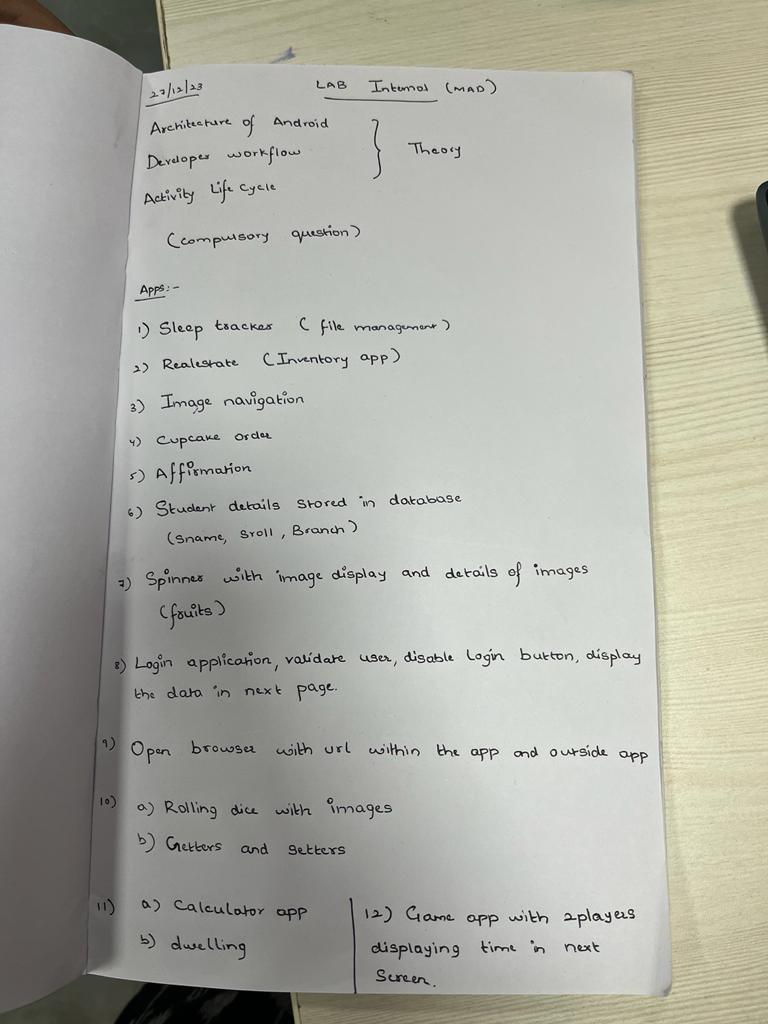 27/12/23
LAB Internal (MAD)
Architecture of Android
Developer workflow
} Theory
Activity Life Cycle
(compulsory question)
Apps:-
1) Sleep tracker ( file management)
2) Realestate (Inventory app)
3) Image navigation
4) Cupcake order
5) Affirmation
6) Student details stored in database
(Sname, Sroll, Branch)
7) Spinner with image display and details of images
(fruits)
8) Login application, validate user, disable Login button, display
the data in next page.
9) Open browser with url within the app and outside app
10) a) Rolling dice with images
b) Getters and setters
11) a) Calculator app
b) dwelling
12) Game app with 2players
displaying time in next
Screen.